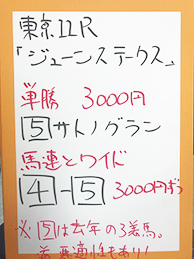 東京12R
「ジューンステークス」
単勝 3000円
5 サトノグラン
馬連とワイド
4-5 3000円ずつ
※5は去年の3着馬。
適性もあり!